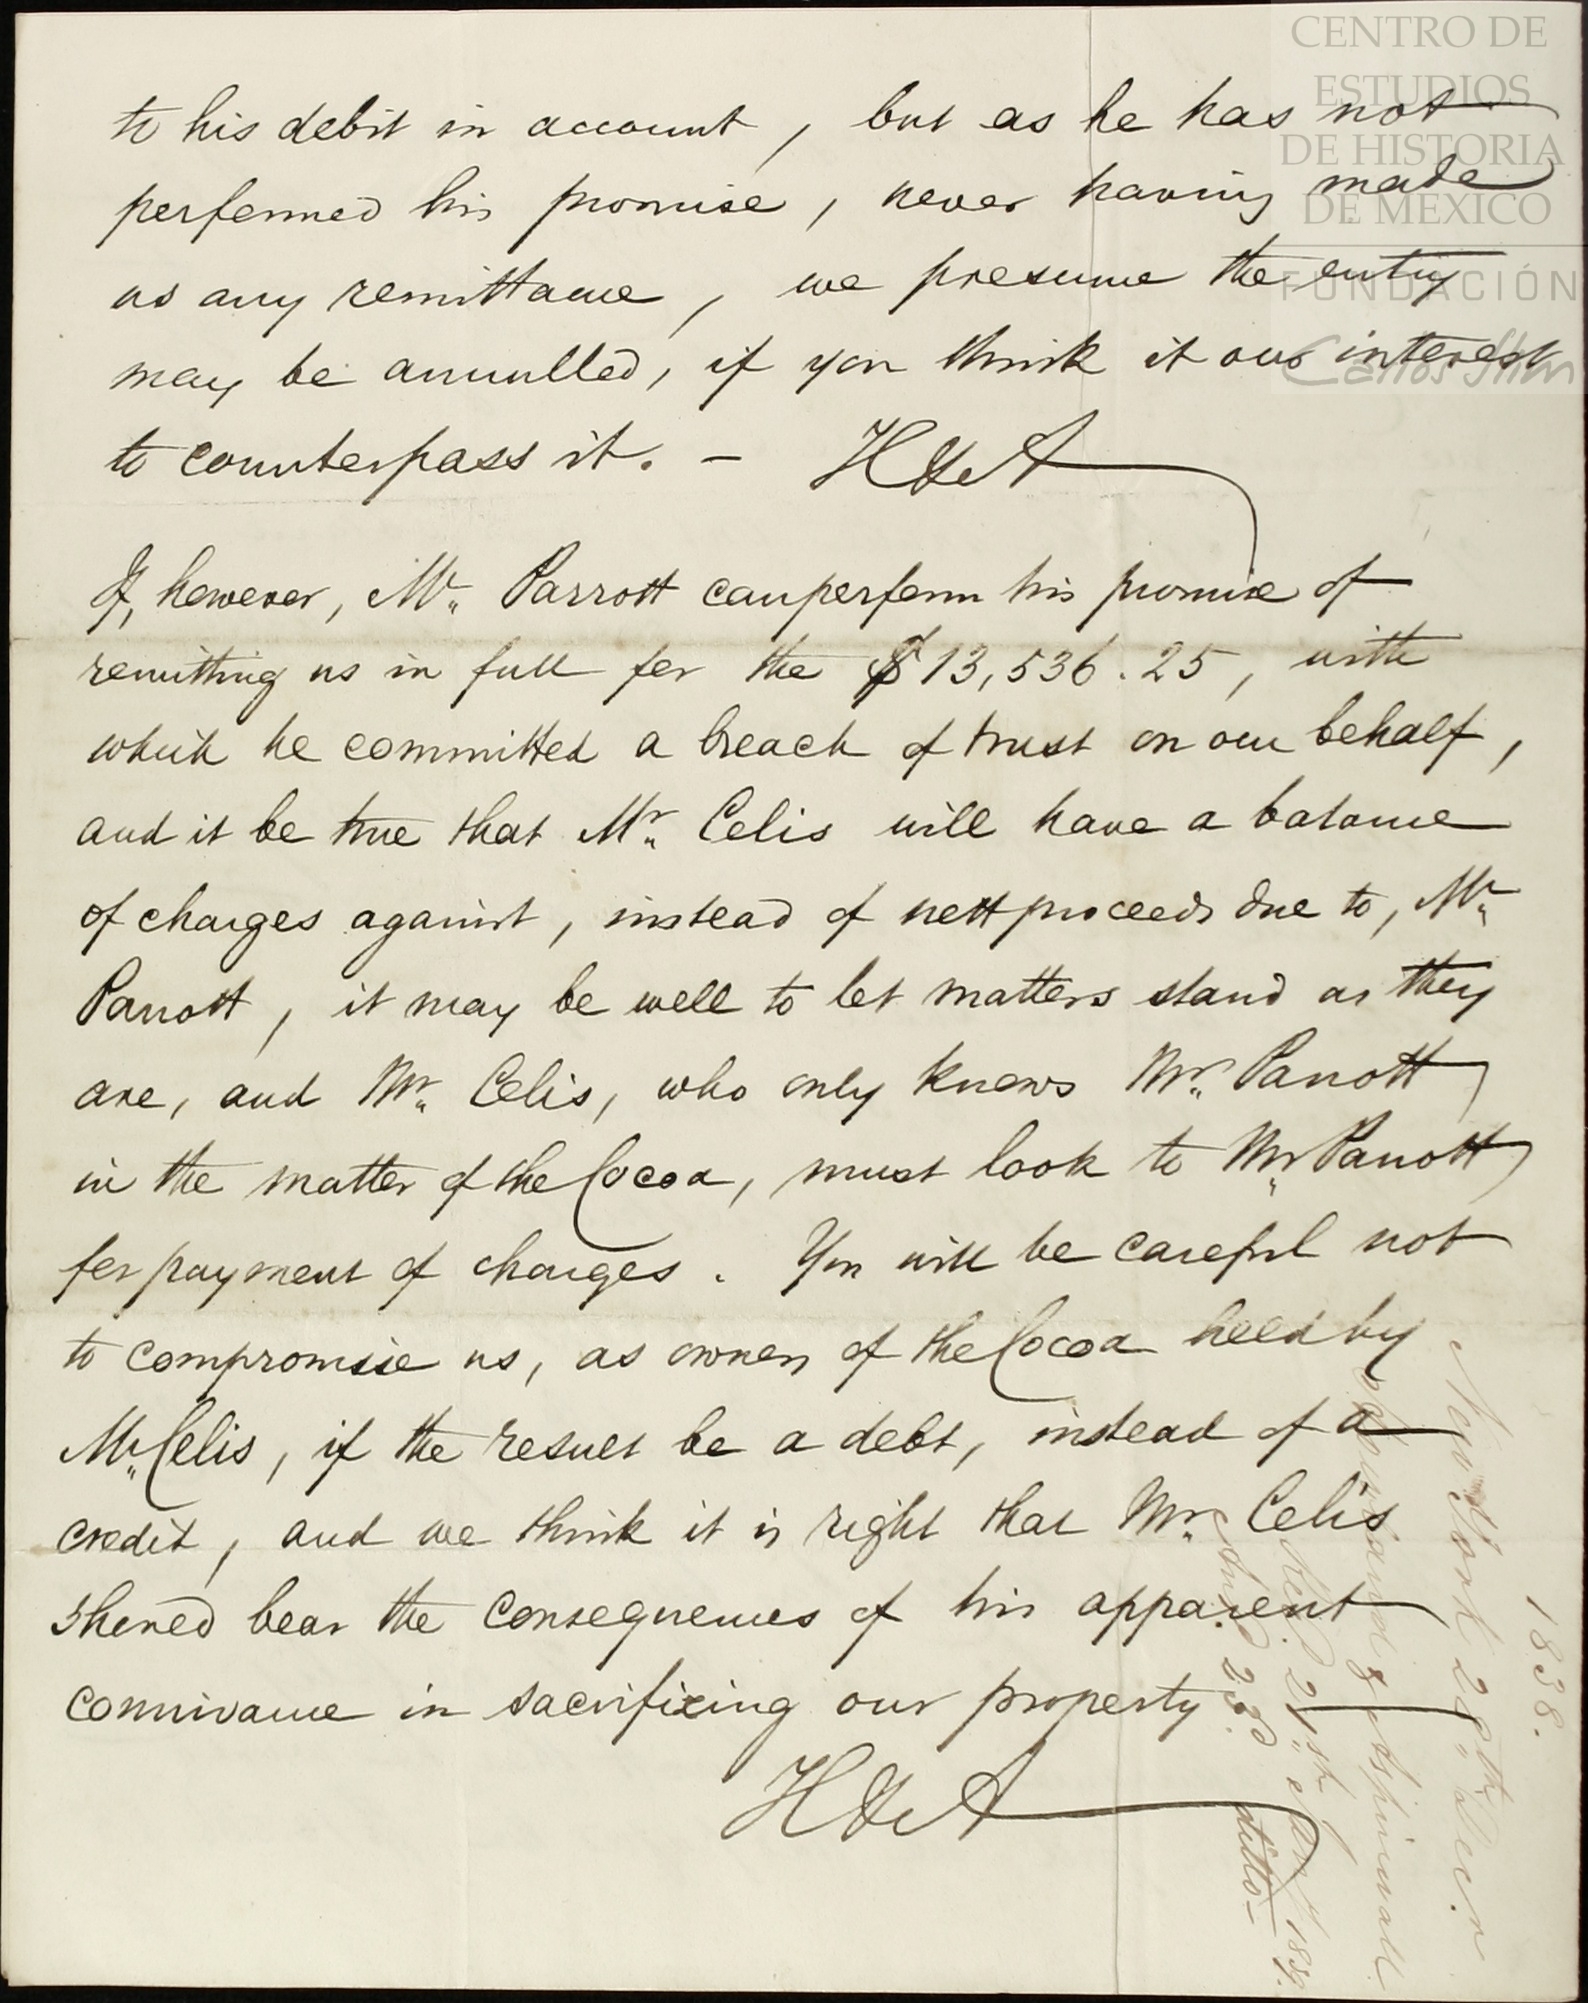 to his debit in account, but as he has not
performed his promise, never having made
us any remittance, we presume the entry
may be annulled, if you think it our interest
to counterpass it. - H&A
If, however, Mr. Parrott can perform his promise of
remitting us in full for the $13,536.25, with
which he committed a breach of trust on our behalf,
and it be true that Mr. Celis will have a balance
of charges against, instead of nett proceeds due to, Mr.
Parrott, it may be well to let matters stand as they
are, and Mr. Celis, who only knows Mr. Parrott
in the matter of the Cocoa, must look to Mr. Parrott
for payment of charges. You will be careful not
to compromise us, as owners of the Cocoa held by
Mr. Celis, if the result be a debt, instead of a
credit, and we think it is right that Mr. Celis
should bear the consequences of his apparent
connivance in sacrificing our property
H&A
1838.
New York 20th Decr.
Howland & Aspinwall
Recd. 21st 1839.
Ansd. 23d. ditto-
CENTRO DE
ESTUDIOS
DE HISTORIA
DE MEXICO
FUNDACIÓN
Carlos Slim